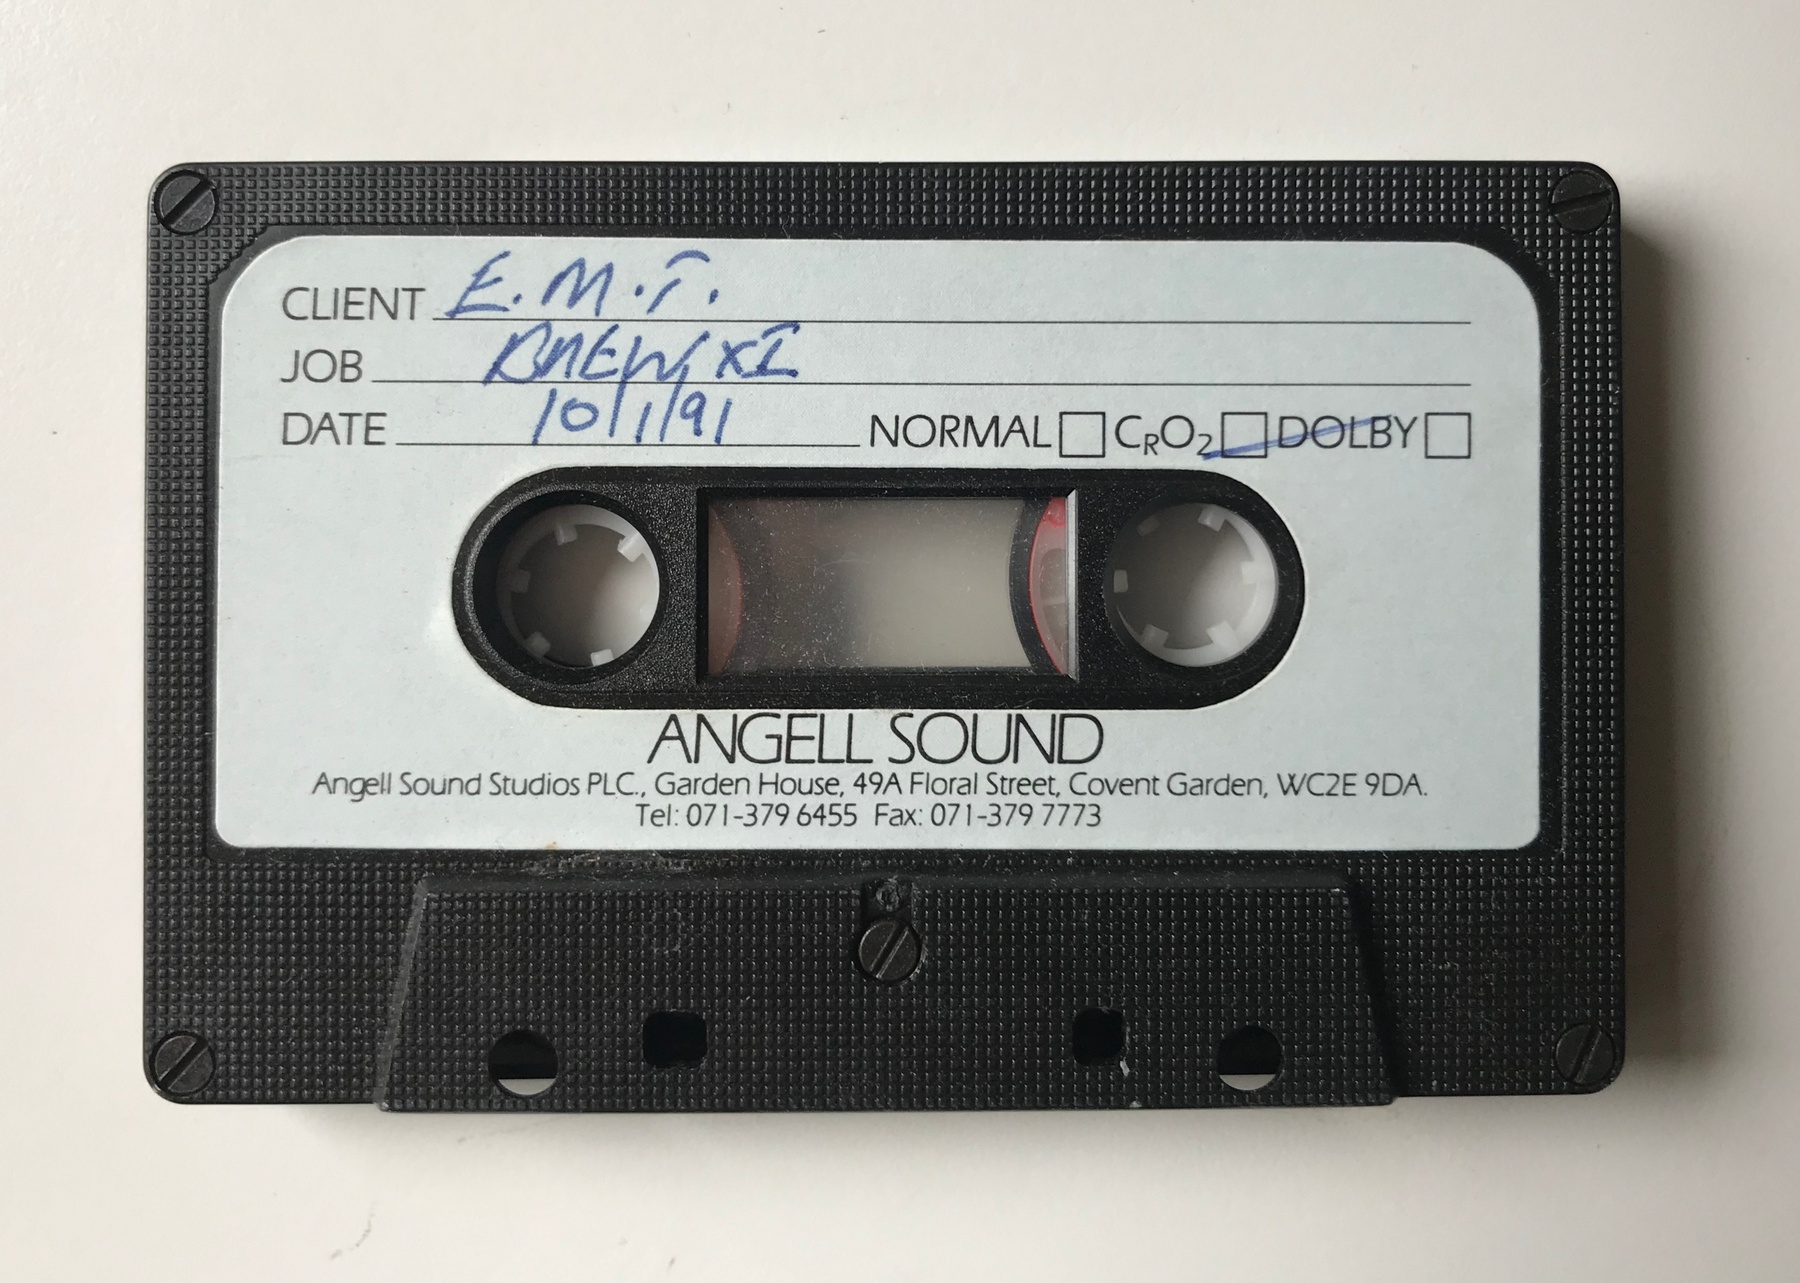 CLIENT E.M.I.
JOB BREW XI
DATE 10/1/91 NORMAL CRO2 DOLBY
ANGELL SOUND
Angell Sound Studios PLC., Garden House, 49A Floral Street, Covent Garden, WC2E 9DA.
Tel: 071-379 6455 Fax: 071-379 7773